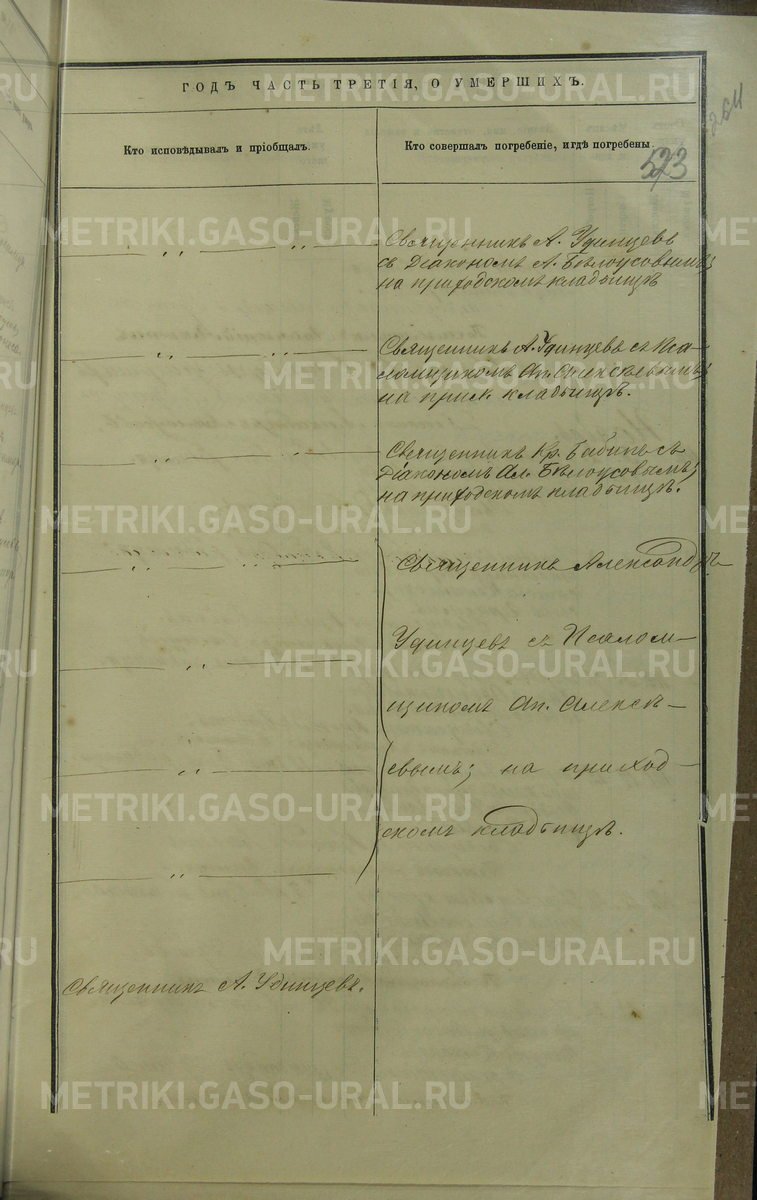 ГОДЪ ЧАСТЬ ТРЕТІЯ, О УМЕРШИХЪ.
264
Кто исповѣдывалъ и пріобщалъ.
Кто совершалъ погребеніе, и гдѣ погребены.
523
— „ — „ — Священникъ А. Удинцевъ
съ Діакономъ А. Бѣлоусовымъ;
на приходскомъ кладбищѣ
— „ — „ — Священникъ А. Удинцевъ съ Пса-
ломщикомъ Ап. Алексѣевымъ;
на прих. кладбищѣ.
— „ — „ — Священникъ Кр. Бабинъ съ
Діакономъ Ал. Бѣлоусовымъ;
на приходскомъ кладбищѣ.
— „ — „ — Священникъ Александръ
Удинцевъ съ Псалом-
— „ —
щикомъ Ап. Алексѣ-
евымъ; на приход-
— „ —
скомъ кладбищѣ.
— „ —
Священникъ А. Удинцевъ.
METRIKI.GASO-URAL.RU